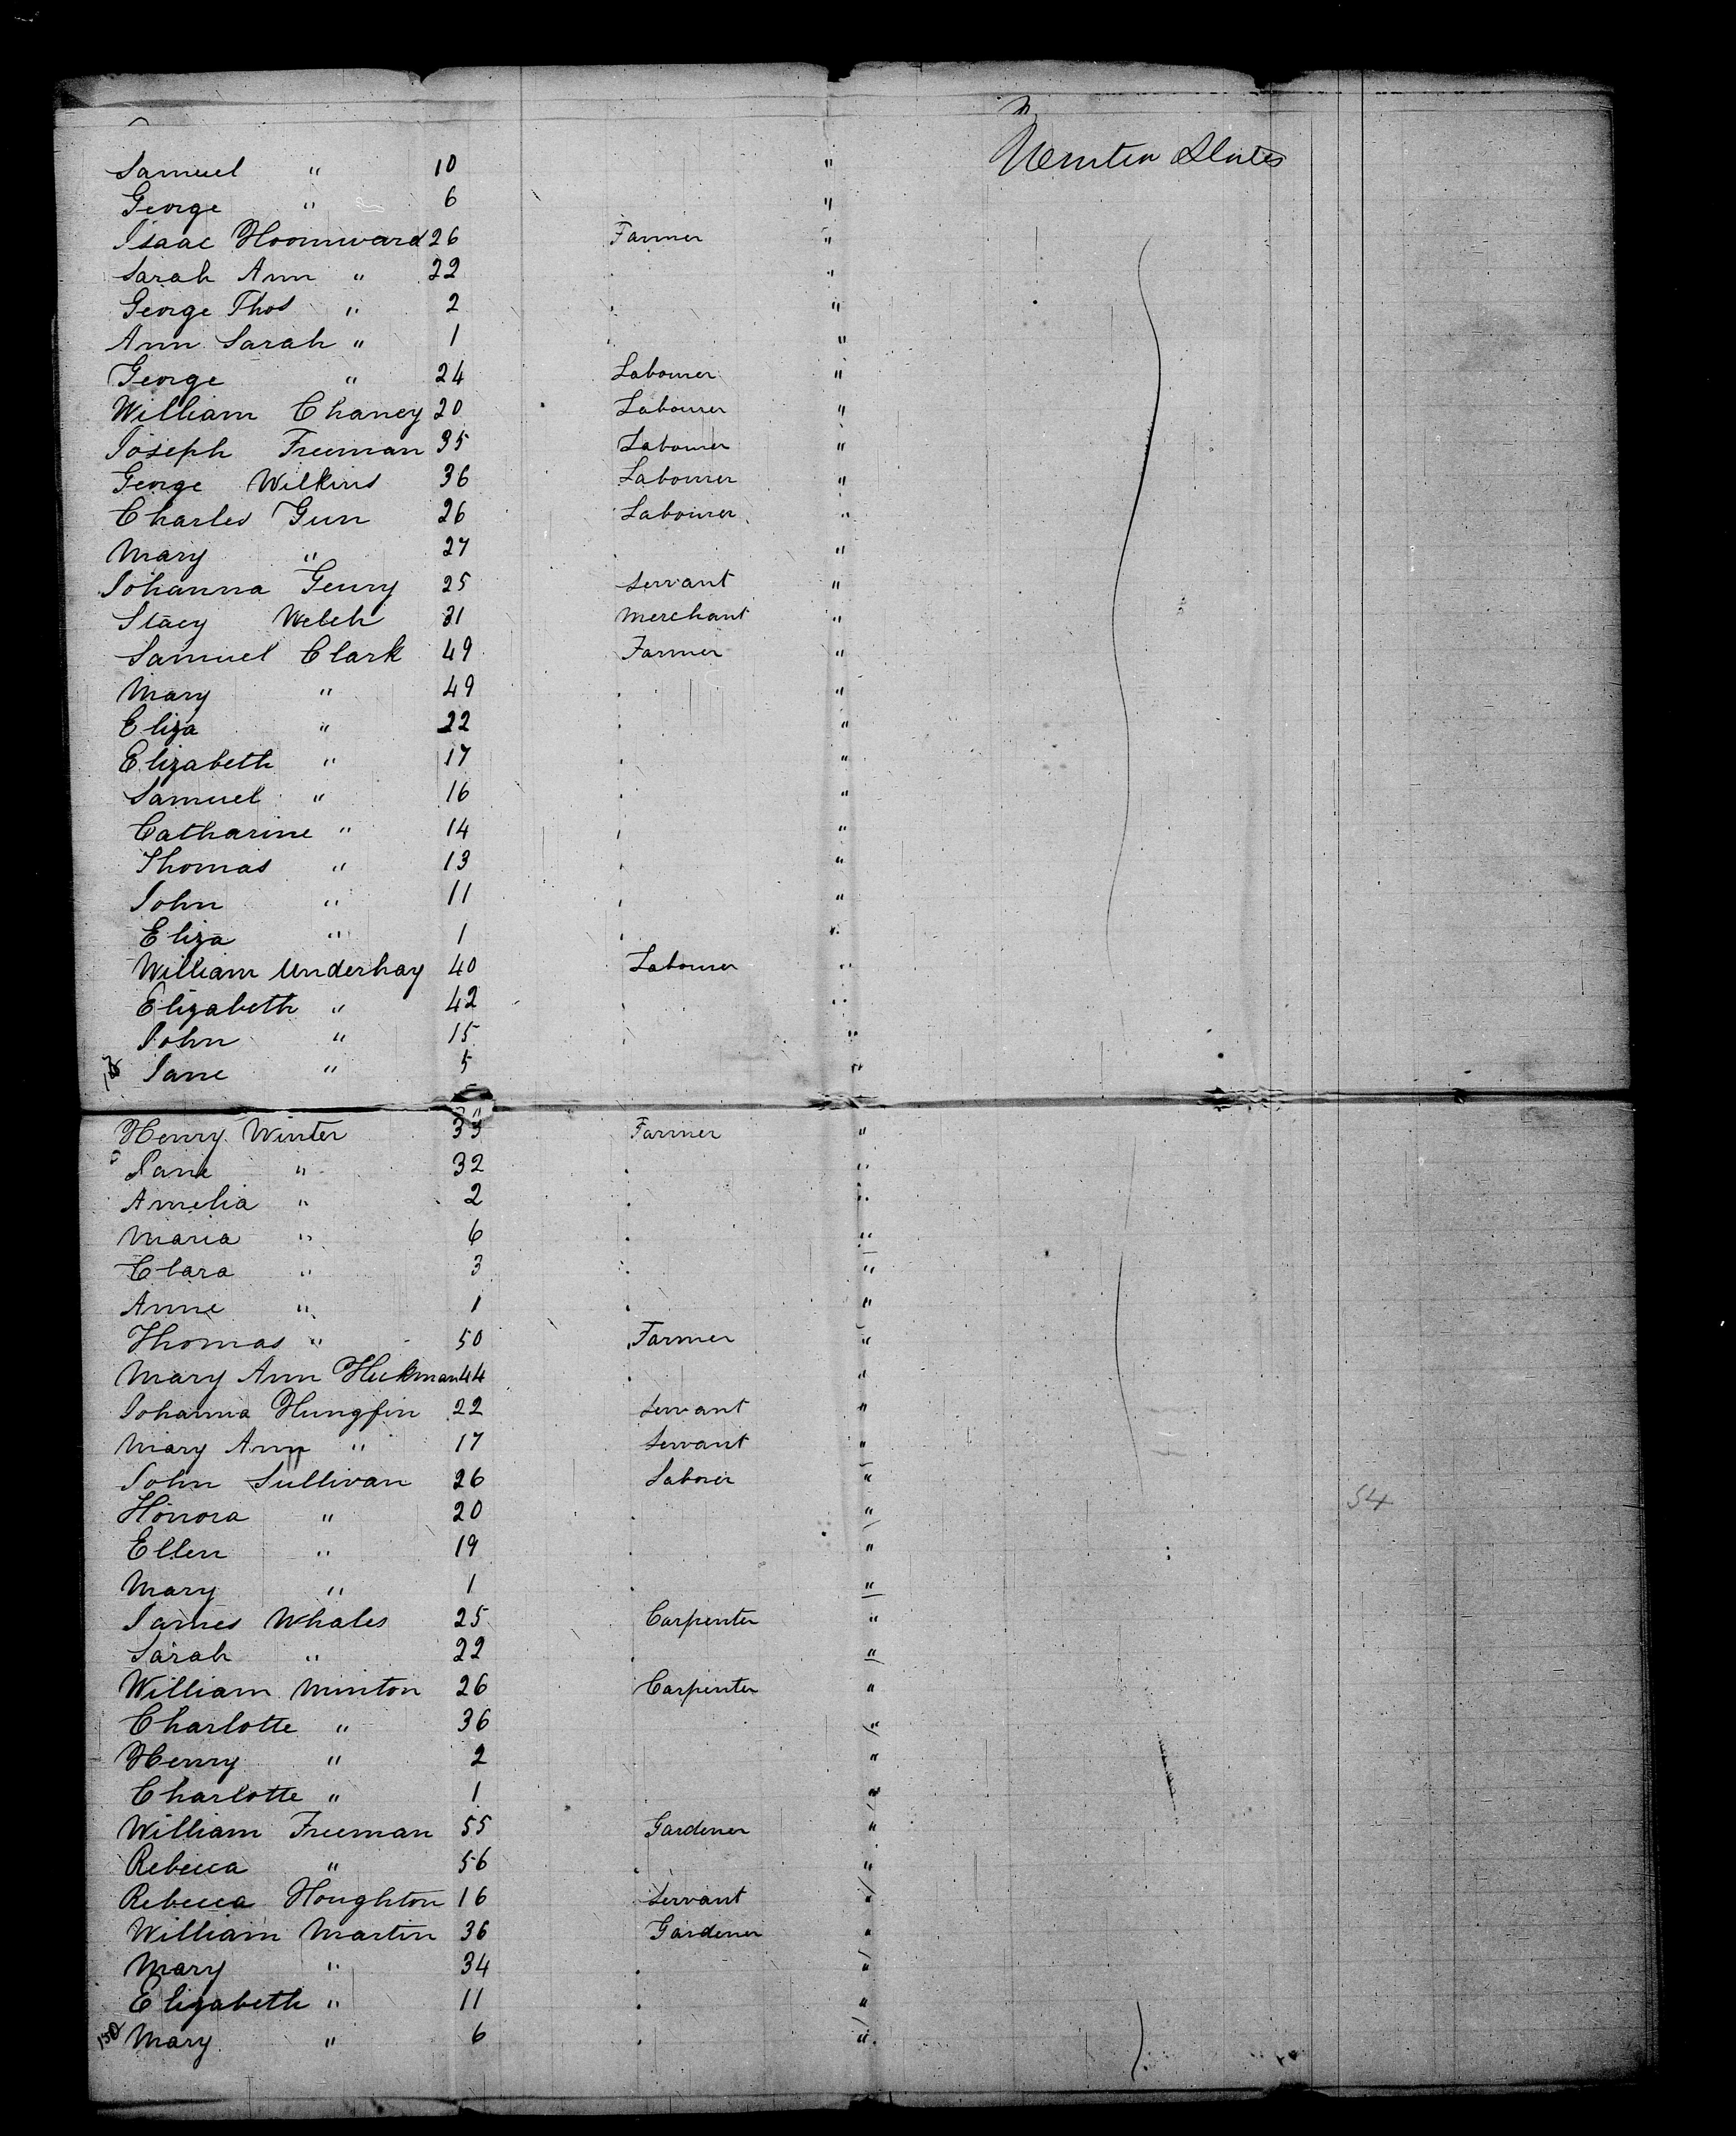 Samuel " 10 " United States
George " 6 "
Isaac Hoomward 26 Farmer "
Sarah Ann " 22 "
George Thos " 2 "
Ann Sarah " 1 "
George " 24 Labourer "
William Chaney 20 Labourer "
Joseph Freeman 35 Labourer "
George Wilkins 36 Labourer "
Charles Gun 26 Labourer "
Mary " 27 "
Johanna Geury 25 Servant "
Stacy Welch 31 Merchant "
Samuel Clark 49 Farmer "
Mary " 49 "
Eliza " 22 "
Elizabeth " 17 "
Samuel " 16 "
Catharine " 14 "
Thomas " 13 "
John " 11 "
Eliza " 1 "
William Underhay 40 Labourer "
Elizabeth " 42 "
John " 15 "
Jane " 5 "
Henry Winter 33 Farmer "
Jane " 32 "
Amelia " 2 "
Maria " 6 "
Clara " 3 "
Anne " 1 "
Thomas " 50 Farmer "
Mary Ann Hickman 44 "
Johanna Hungfin 22 Servant "
Mary Ann " 17 Servant "
John Sullivan 26 Laborer "
Honora " 20 " 54
Ellen " 19 "
Mary " 1 "
James Whales 25 Carpenter "
Sarah " 22 "
William Minton 26 Carpenter "
Charlotte " 36 "
Henry " 2 "
Charlotte " 1 "
William Freeman 55 Gardener "
Rebecca " 56 "
Rebecca Houghton 16 Servant "
William Martin 36 Gardener "
Mary " 34 "
Elizabeth " 11 "
150 Mary " 6 "